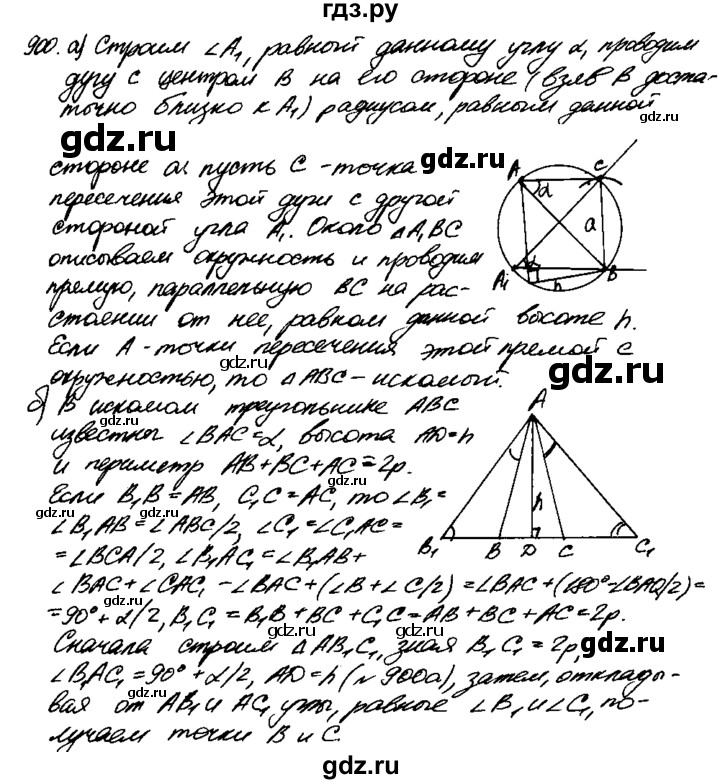 гдз.ру
900. а) Строим ∠A₁, равный данному углу α, проводим
дугу с центром B на его стороне (взяв B доста-
точно близко к A₁) радиусом, равным данной
gdz.ru
gdz.ru
стороне a. пусть C - точка
пересечения этой дуги с другой
стороной угла A₁. Около △A₁BC
описываем окружность и проводим
прямую, параллельную BC на рас-
стоянии от нее, равном данной высоте h.
Если A - точки пересечения этой прямой с
окружностью, то △ABC - искомый.
A
C
α
a
A₁
α
h
B
gdz.ru
gdz.ru
gdz.ru
б) В искомом треугольнике ABC
известны ∠BAC=α, высота AD=h
и периметр AB+BC+AC=2p.
Если B₁B=AB, C₁C=AC, то ∠B₁=
∠B₁AB=∠ABC/2, ∠C₁=∠C₁AC=
=∠BCA/2, ∠B₁AC₁=∠B₁AB+
∠BAC+∠CAC₁-∠BAC+(∠B+∠C/2)=∠BAC+(180°-∠BAC/2)=
=90°+α/2, B₁C₁=B₁B+BC+C₁C=AB+BC+AC=2p.
Сначала строим △AB₁C₁, зная B₁C₁=2p,
∠B₁AC₁=90°+α/2, AD=h (№900а), затем, отклады-
вая от AB₁ и AC₁ углы, равные ∠B₁ и ∠C₁, по-
лучаем точки B и C.
A
h
B₁
B
D
C
C₁
gdz.ru
gdz.ru
gdz.ru
gdz.ru
gdz.ru
gdz.ru
gdz.ru